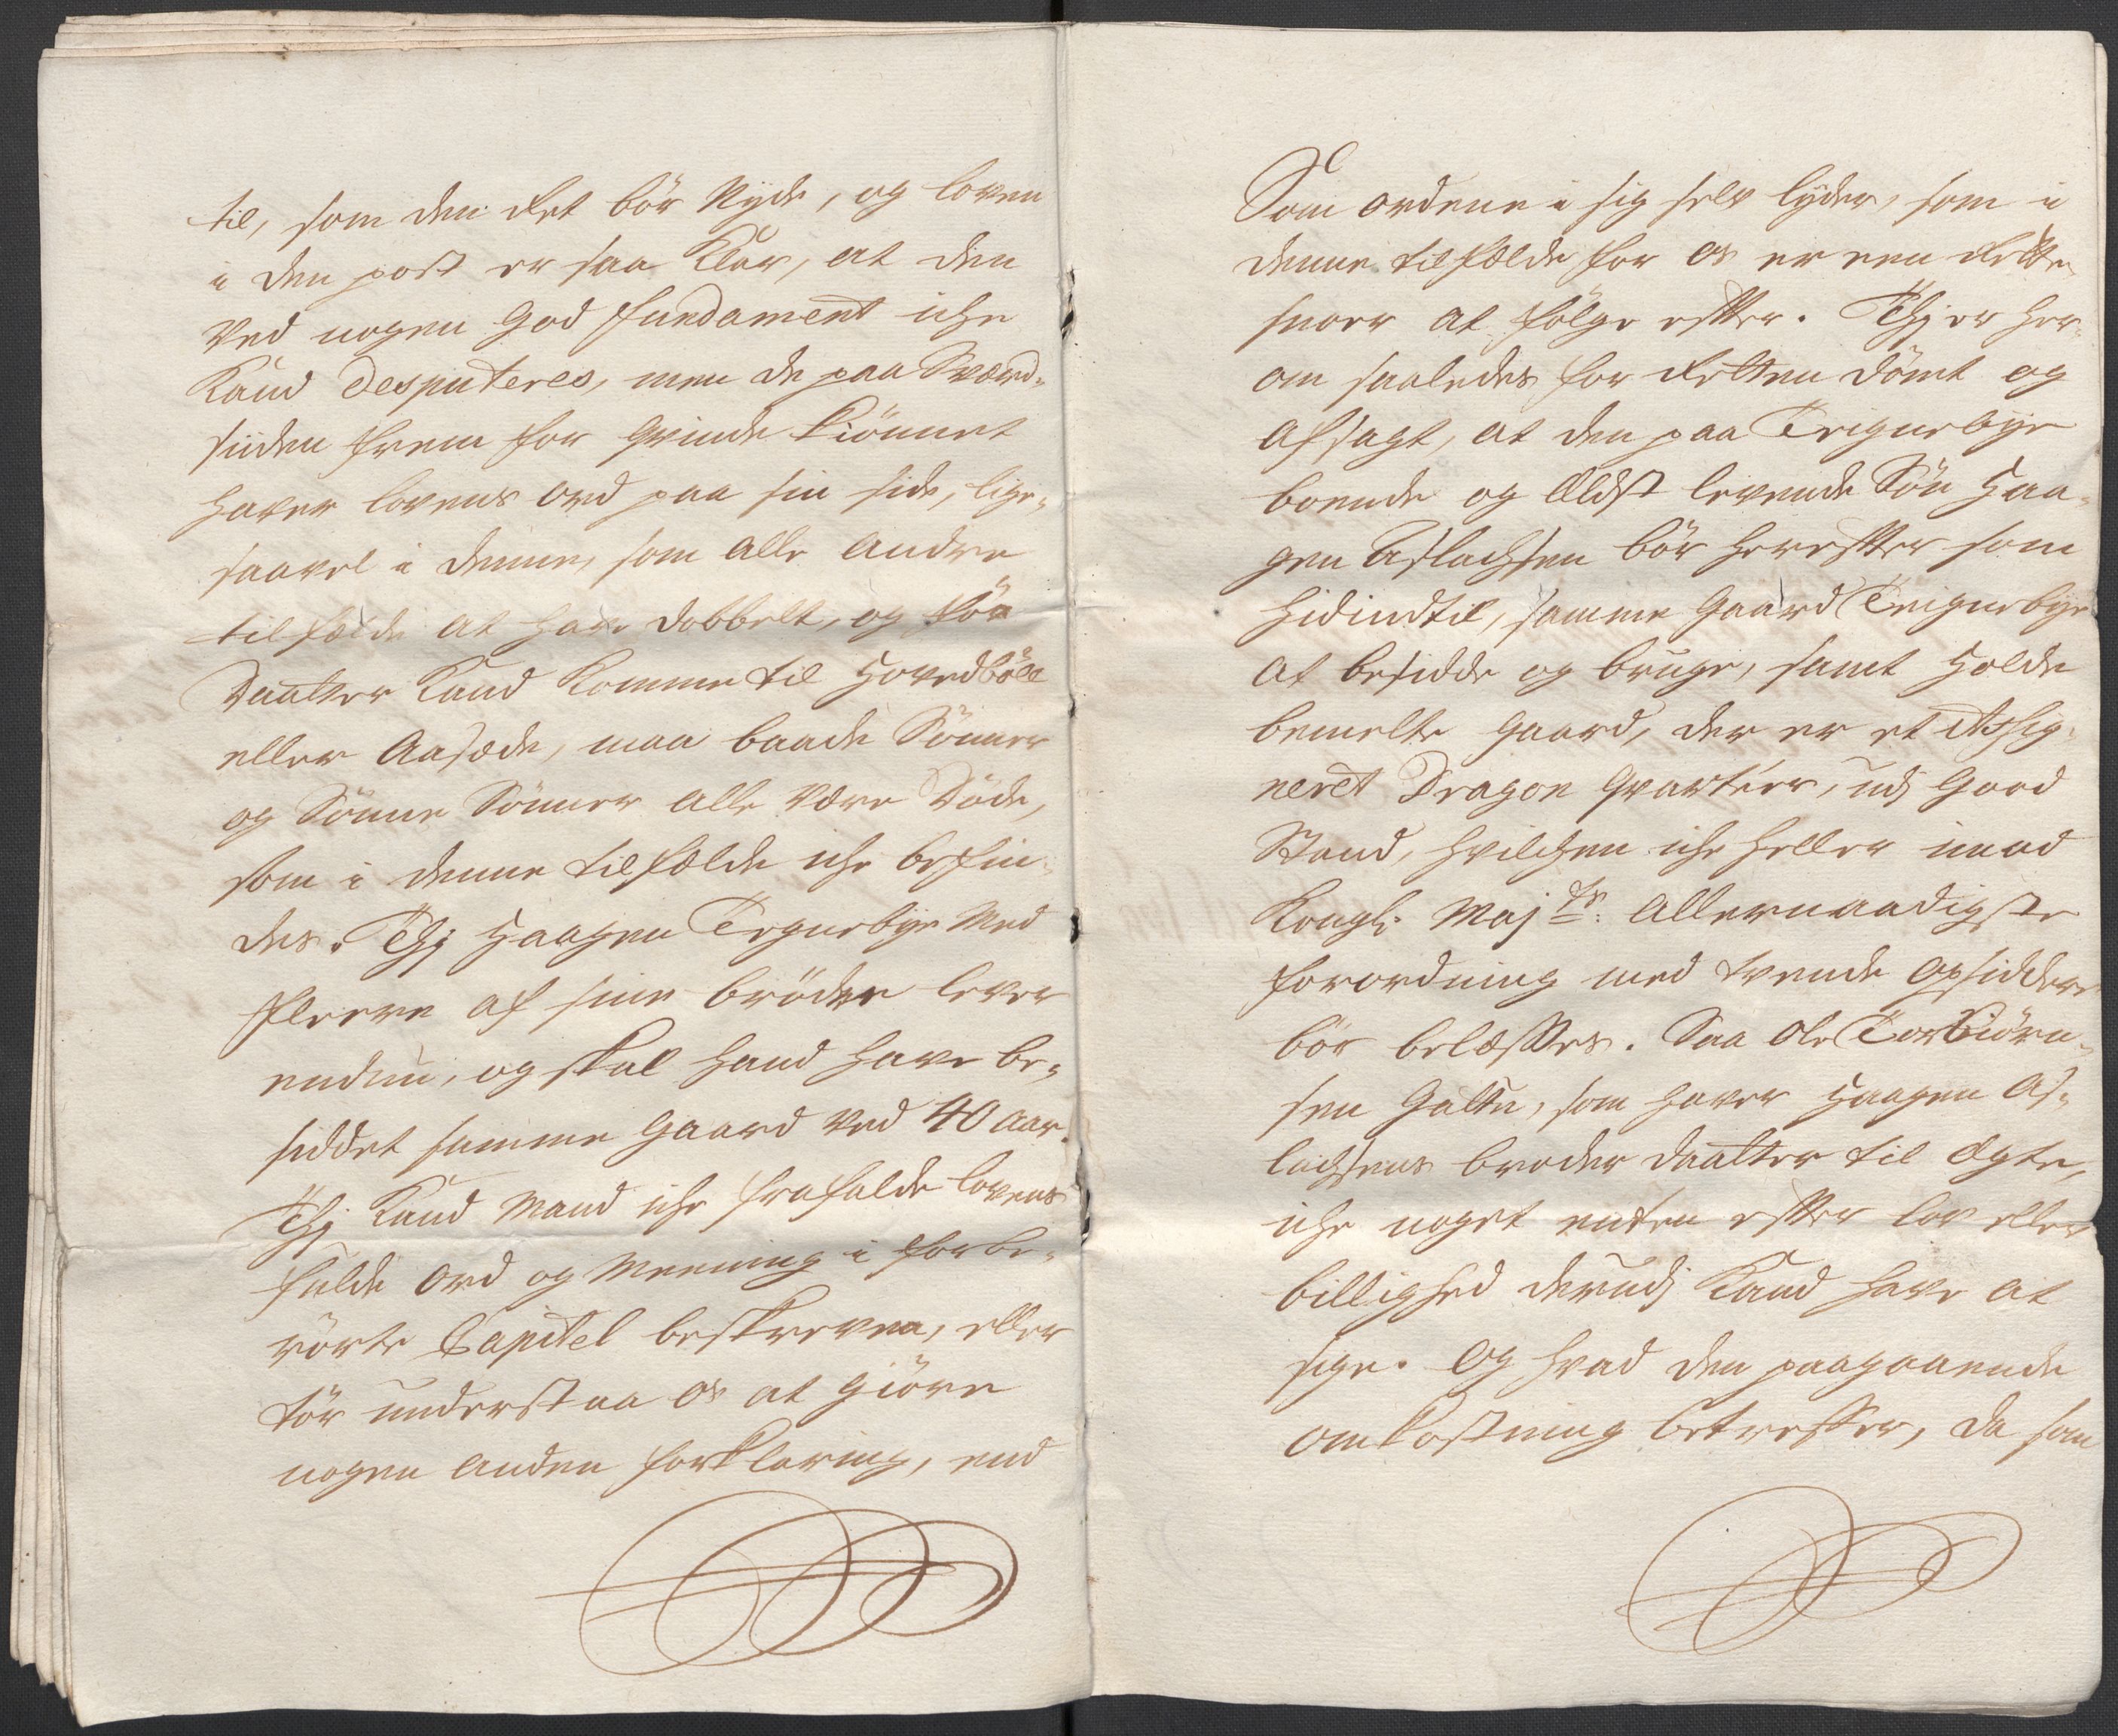 til, som den det bör Nyde, og loven
i den post er saa Klar, at den
Ved nogen god fundament iche
Kand desputeres, men de paa Sværd-
siiden frem for qvinde kiönnet
haver lovens ord paa sin side, lige-
saavel i denne, som alle andre
tilfælde at have dobbelt, og för
Daatter Kand Komme til Hovedböll
eller Aasæde, maa baade Sönner
og Sönne Sönner alle være Döde,
som i denne tilfælde iche befin-
des. Thj Haagen Tegnebye Med
fleere af sine brödre lever
endnu, og skal hand have be-
siddet samme gaard ved 40 aar.
Thj Kand Mand iche frafalde lovens
fulde ord og Meening i forbe-
rörte Capitel beskreven, eller
tör understaa os at giöre
nogen anden forklaring, end
Som ordene i sig selv lyder, som i
denne tilfælde for os er een Rette
snoer at fölge efter. Thj er her-
om saaledes for Retten dömt og
afsagt, at den paa Teignebye
boende og Eldst levende Sön Haa-
gen Aslachsen bör herefter som
hidindtil, samme gaard Teignebye
at besidde og bruge, samt holde
bemelte gaard, der er et Assig-
neret Dragon qvarteer, udj good
Stand, hvilchen iche heller imod
Kongl: Maj:ts: allernaadigste
forordning med tvende opsiddere
bör belæsses. Saa Ole Torbiörn-
sen Galte, som haver Haagen As-
lachsens broder daatter til ægte,
iche noget enten efter lov eller
billighed derudj Kand have at
sige. Og hvad den paagaaende
omkostning betreffer, da som